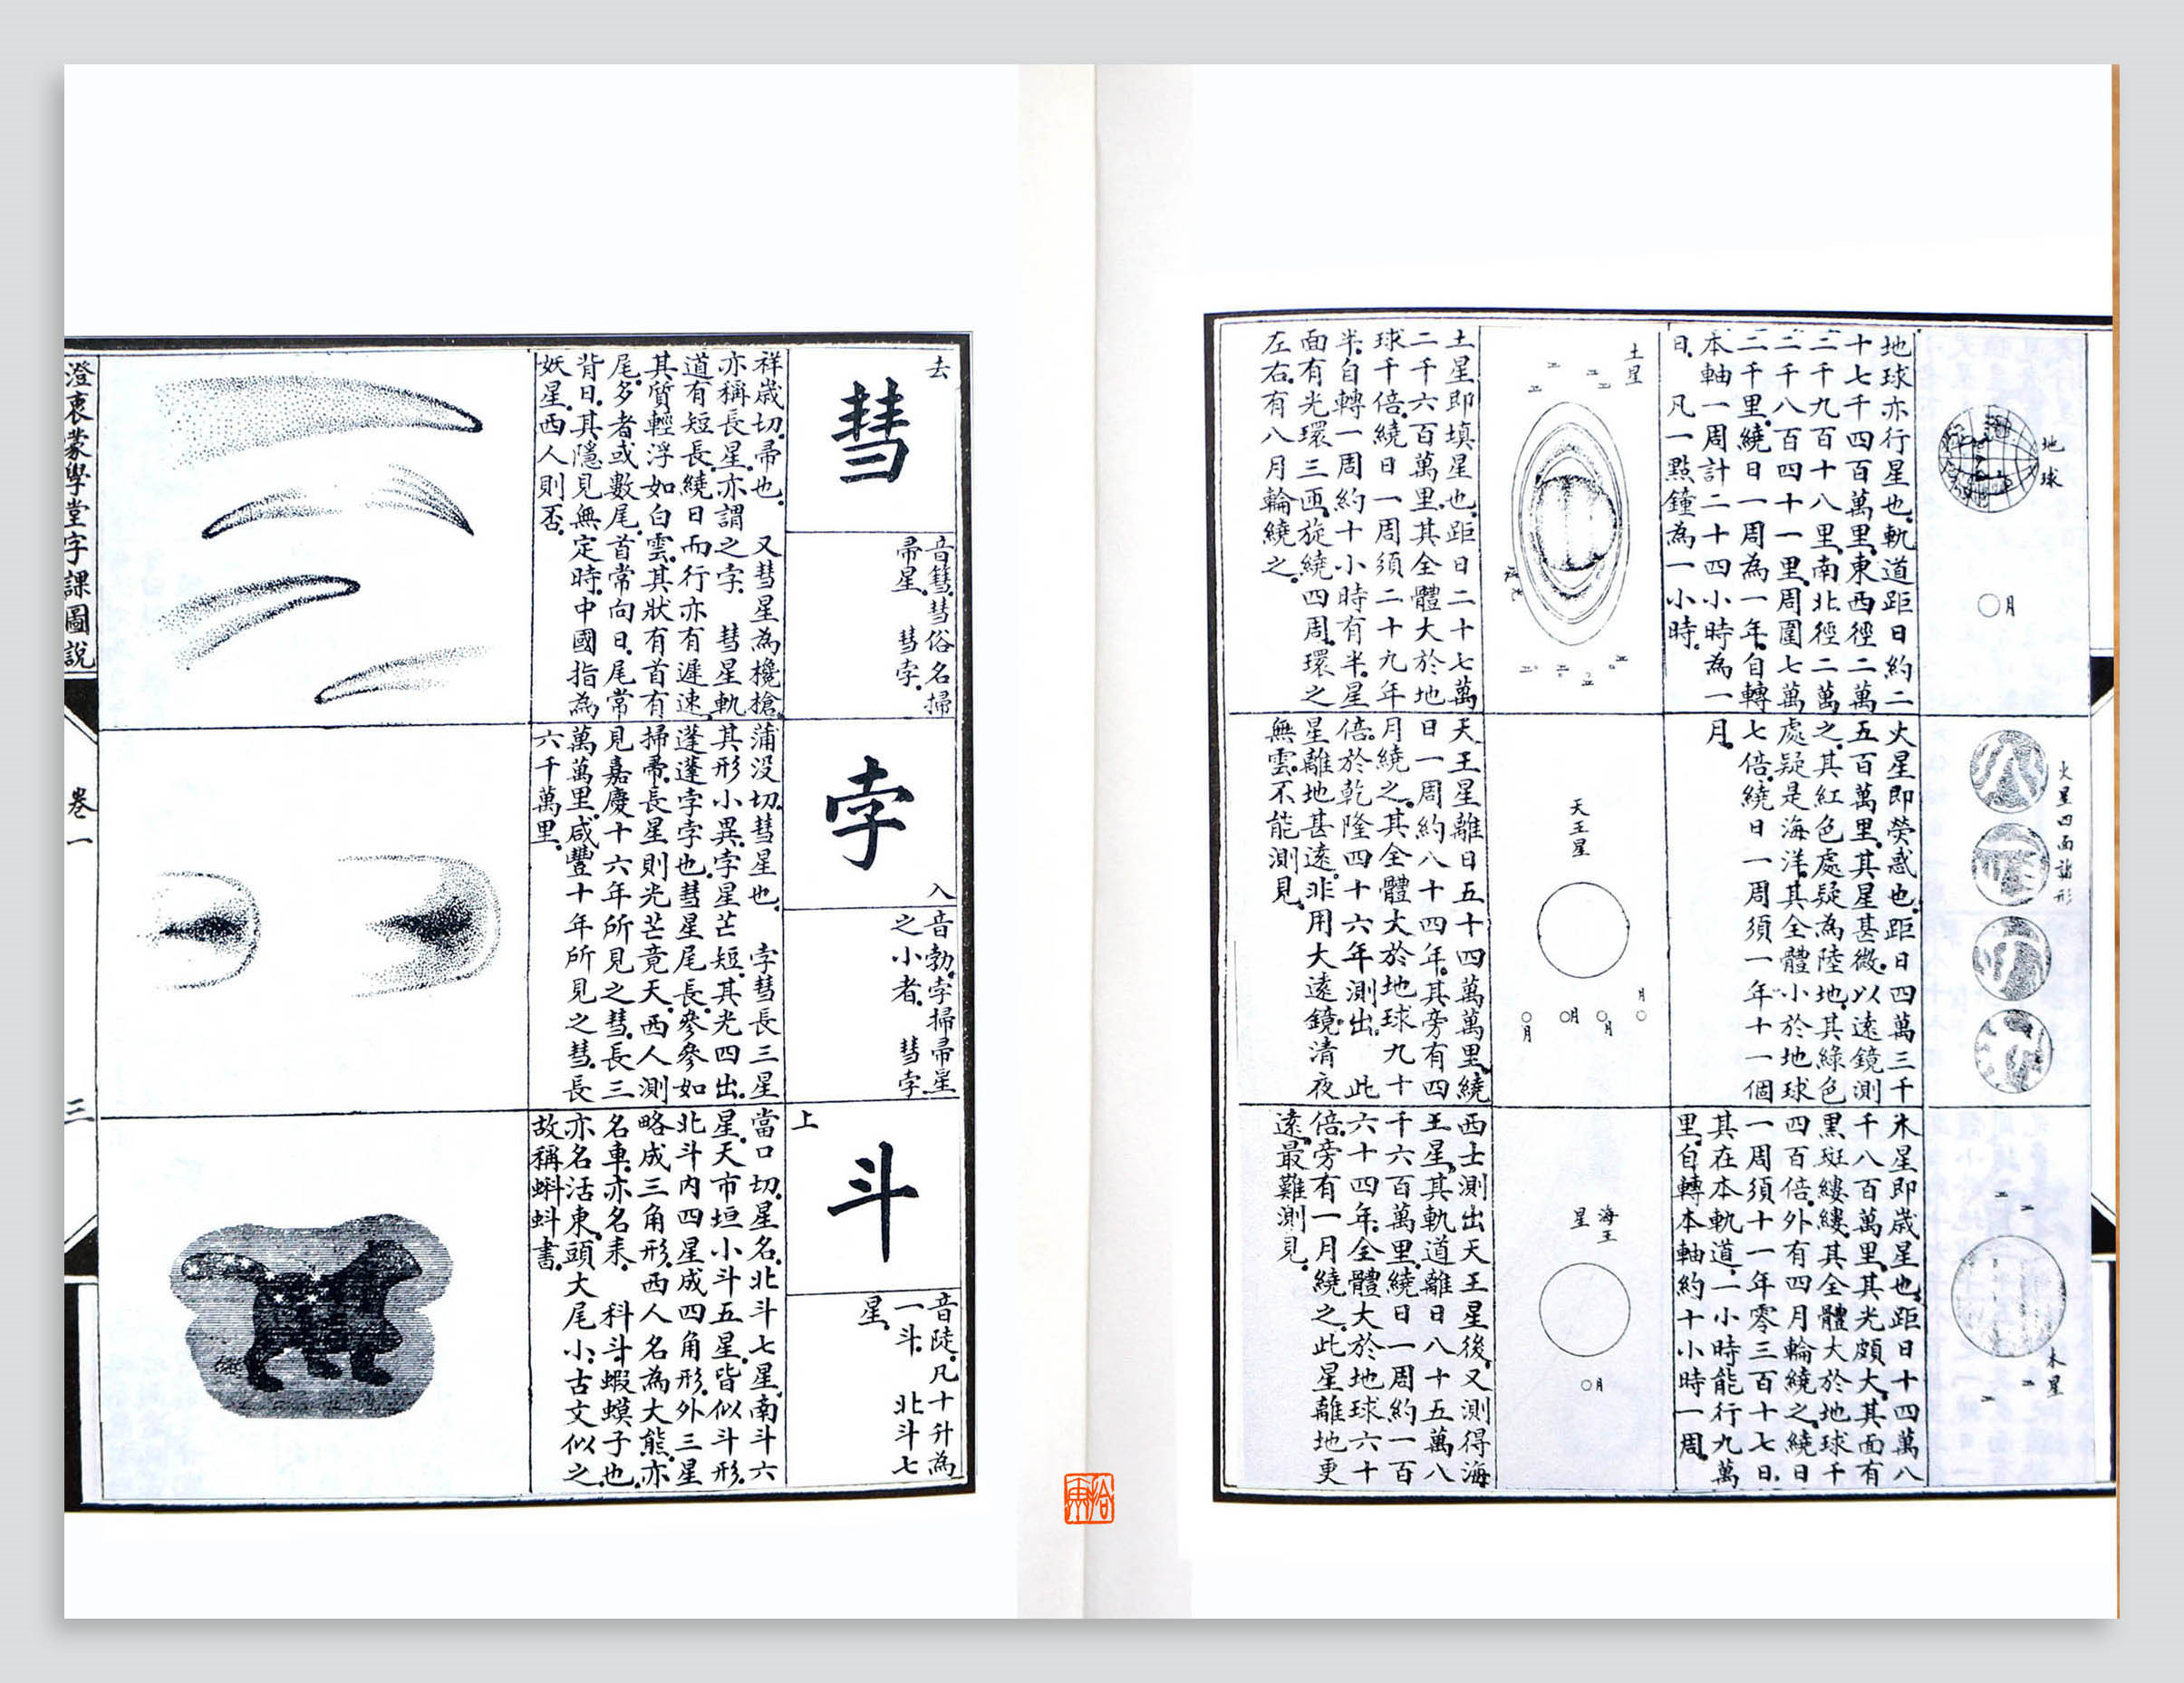 地球
月
地球亦行星也.軌道距日約二
十七千四百萬里.東西徑二萬
三千九百十八里.南北徑二萬
二千八百四十一里.周圍七萬
二千里.繞日一周為一年.自轉
本軸一周計二十四小時為一
日.凡一點鐘為一小時.
土星
土星即填星也.距日二十七萬
二千六百萬里.其全體大於地
球千倍.繞日一周須二十九年
半.自轉一周約十小時有半.星
面有光環三匝.旋繞四周.環之
左右.有八月輪繞之.
火星四面諸形
火星即熒惑也.距日四萬三千
五百萬里.其星甚微.以遠鏡測
之.其紅色處疑為陸地.其綠色
處疑是海洋.其全體小於地球
七倍.繞日一周須一年十一個
月.
天王星
月
月
月
月
天王星離日五十四萬萬里.繞
日一周約八十四年.其旁有四
月繞之.其全體大於地球九十
倍.於乾隆四十六年測出.此
星離地甚遠.非用大遠鏡清夜
無雲.不能測見.
木星
木星即歲星也.距日十四萬八
千八百萬里.其光頗大.其面有
黑斑縷縷.其全體大於地球千
四百倍.外有四月輪繞之.繞日
一周須十一年零三百十七日.
其在本軌道.一小時能行九萬
里.自轉本軸約十小時一周.
海王
星
月
西士測出天王星後.又測得海
王星.其軌道離日八十五萬八
千六百萬里.繞日一周約一百
六十四年.全體大於地球六十
倍.旁有一月繞之.此星離地更
遠.最難測見.
去
彗
音篲.彗俗名掃
帚星.彗孛.
祥歲切.帚也.又彗星為欃槍.
亦稱長星.亦謂之孛.彗星軌
道有短長.繞日而行.亦有遲速.
其質輕浮如白雲.其狀有首有
尾.多者或數尾.首常向日.尾常
背日.其隱見無定時.中國指為
妖星.西人則否.
孛
入
音勃.孛掃帚星
之小者.彗孛.
蒲沒切.彗星也.孛彗長三星
其形小異.孛星芒短.其光四出.
蓬蓬孛孛也.彗星尾長.參參如
掃帚.長星則光芒竟天.西人測
見嘉慶十六年所見之彗.長三
萬萬里.咸豐十年所見之彗.長
六千萬里.
上
斗
音陡.凡十升為
一斗.北斗七
星.
當口切.星名.北斗七星.南斗六
星.天市垣小斗五星.皆似斗形.
北斗內四星成四角形.外三星
略成三角形.西人名為大熊.亦
名車.亦名耒.科斗.蝦蟆子也.
亦名活東.頭大尾小.古文似之.
故稱蝌蚪書.
澄衷蒙學堂字課圖說
卷一
三